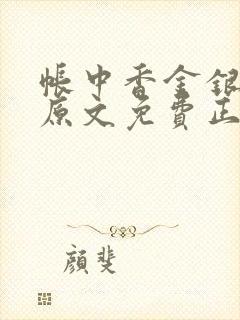 帳中香金銀
原文免費正
顏斐